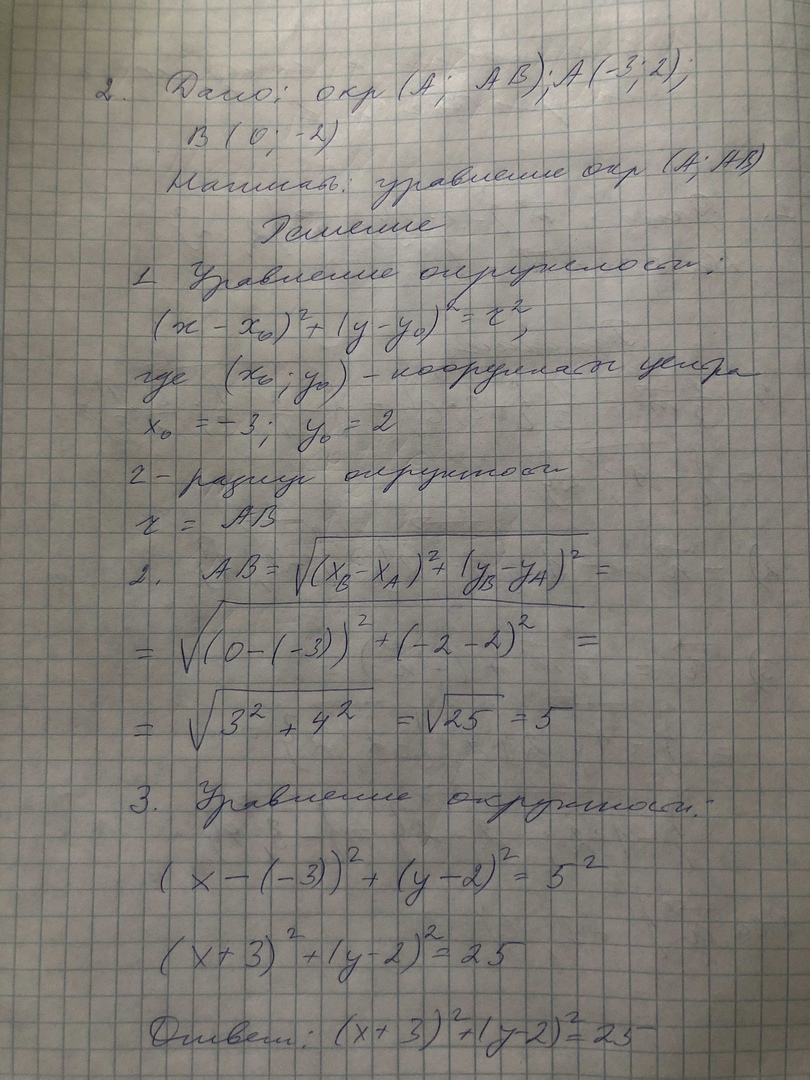 2. Дано: окр (А; АВ); А(-3; 2);
В (0; -2)
Написать: уравнение окр (А; АВ)
Решение
1. Уравнение окружности:
(x - x₀)² + (y - y₀)² = r²,
где (x₀; y₀) - координаты центра
x₀ = -3; y₀ = 2
r - радиус окружности
r = АВ
2. АВ = √((x_B - x_A)² + (y_B - y_A)²) =
= √((0 - (-3))² + (-2 - 2)²) =
= √(3² + 4²) = √25 = 5
3. Уравнение окружности:
(x - (-3))² + (y - 2)² = 5²
(x + 3)² + (y - 2)² = 25
Ответ: (x + 3)² + (y - 2)² = 25